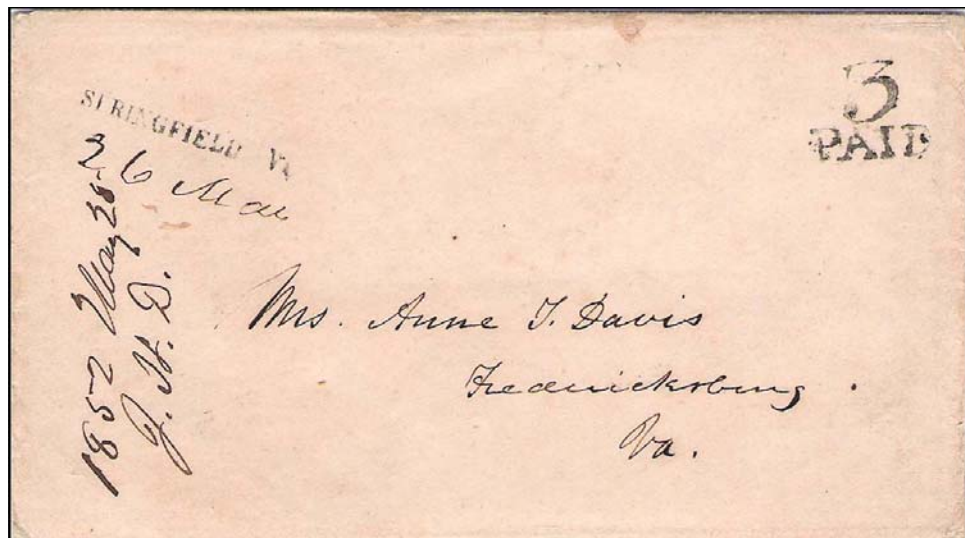 3
PAID
SPRINGFIELD Va
26 May
1852 May 25
J. H. D.
Mrs. Anne T. Davis
Fredericksburg
Va.